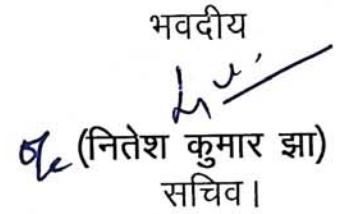 भवदीय
(नितेश कुमार झा)
सचिव।